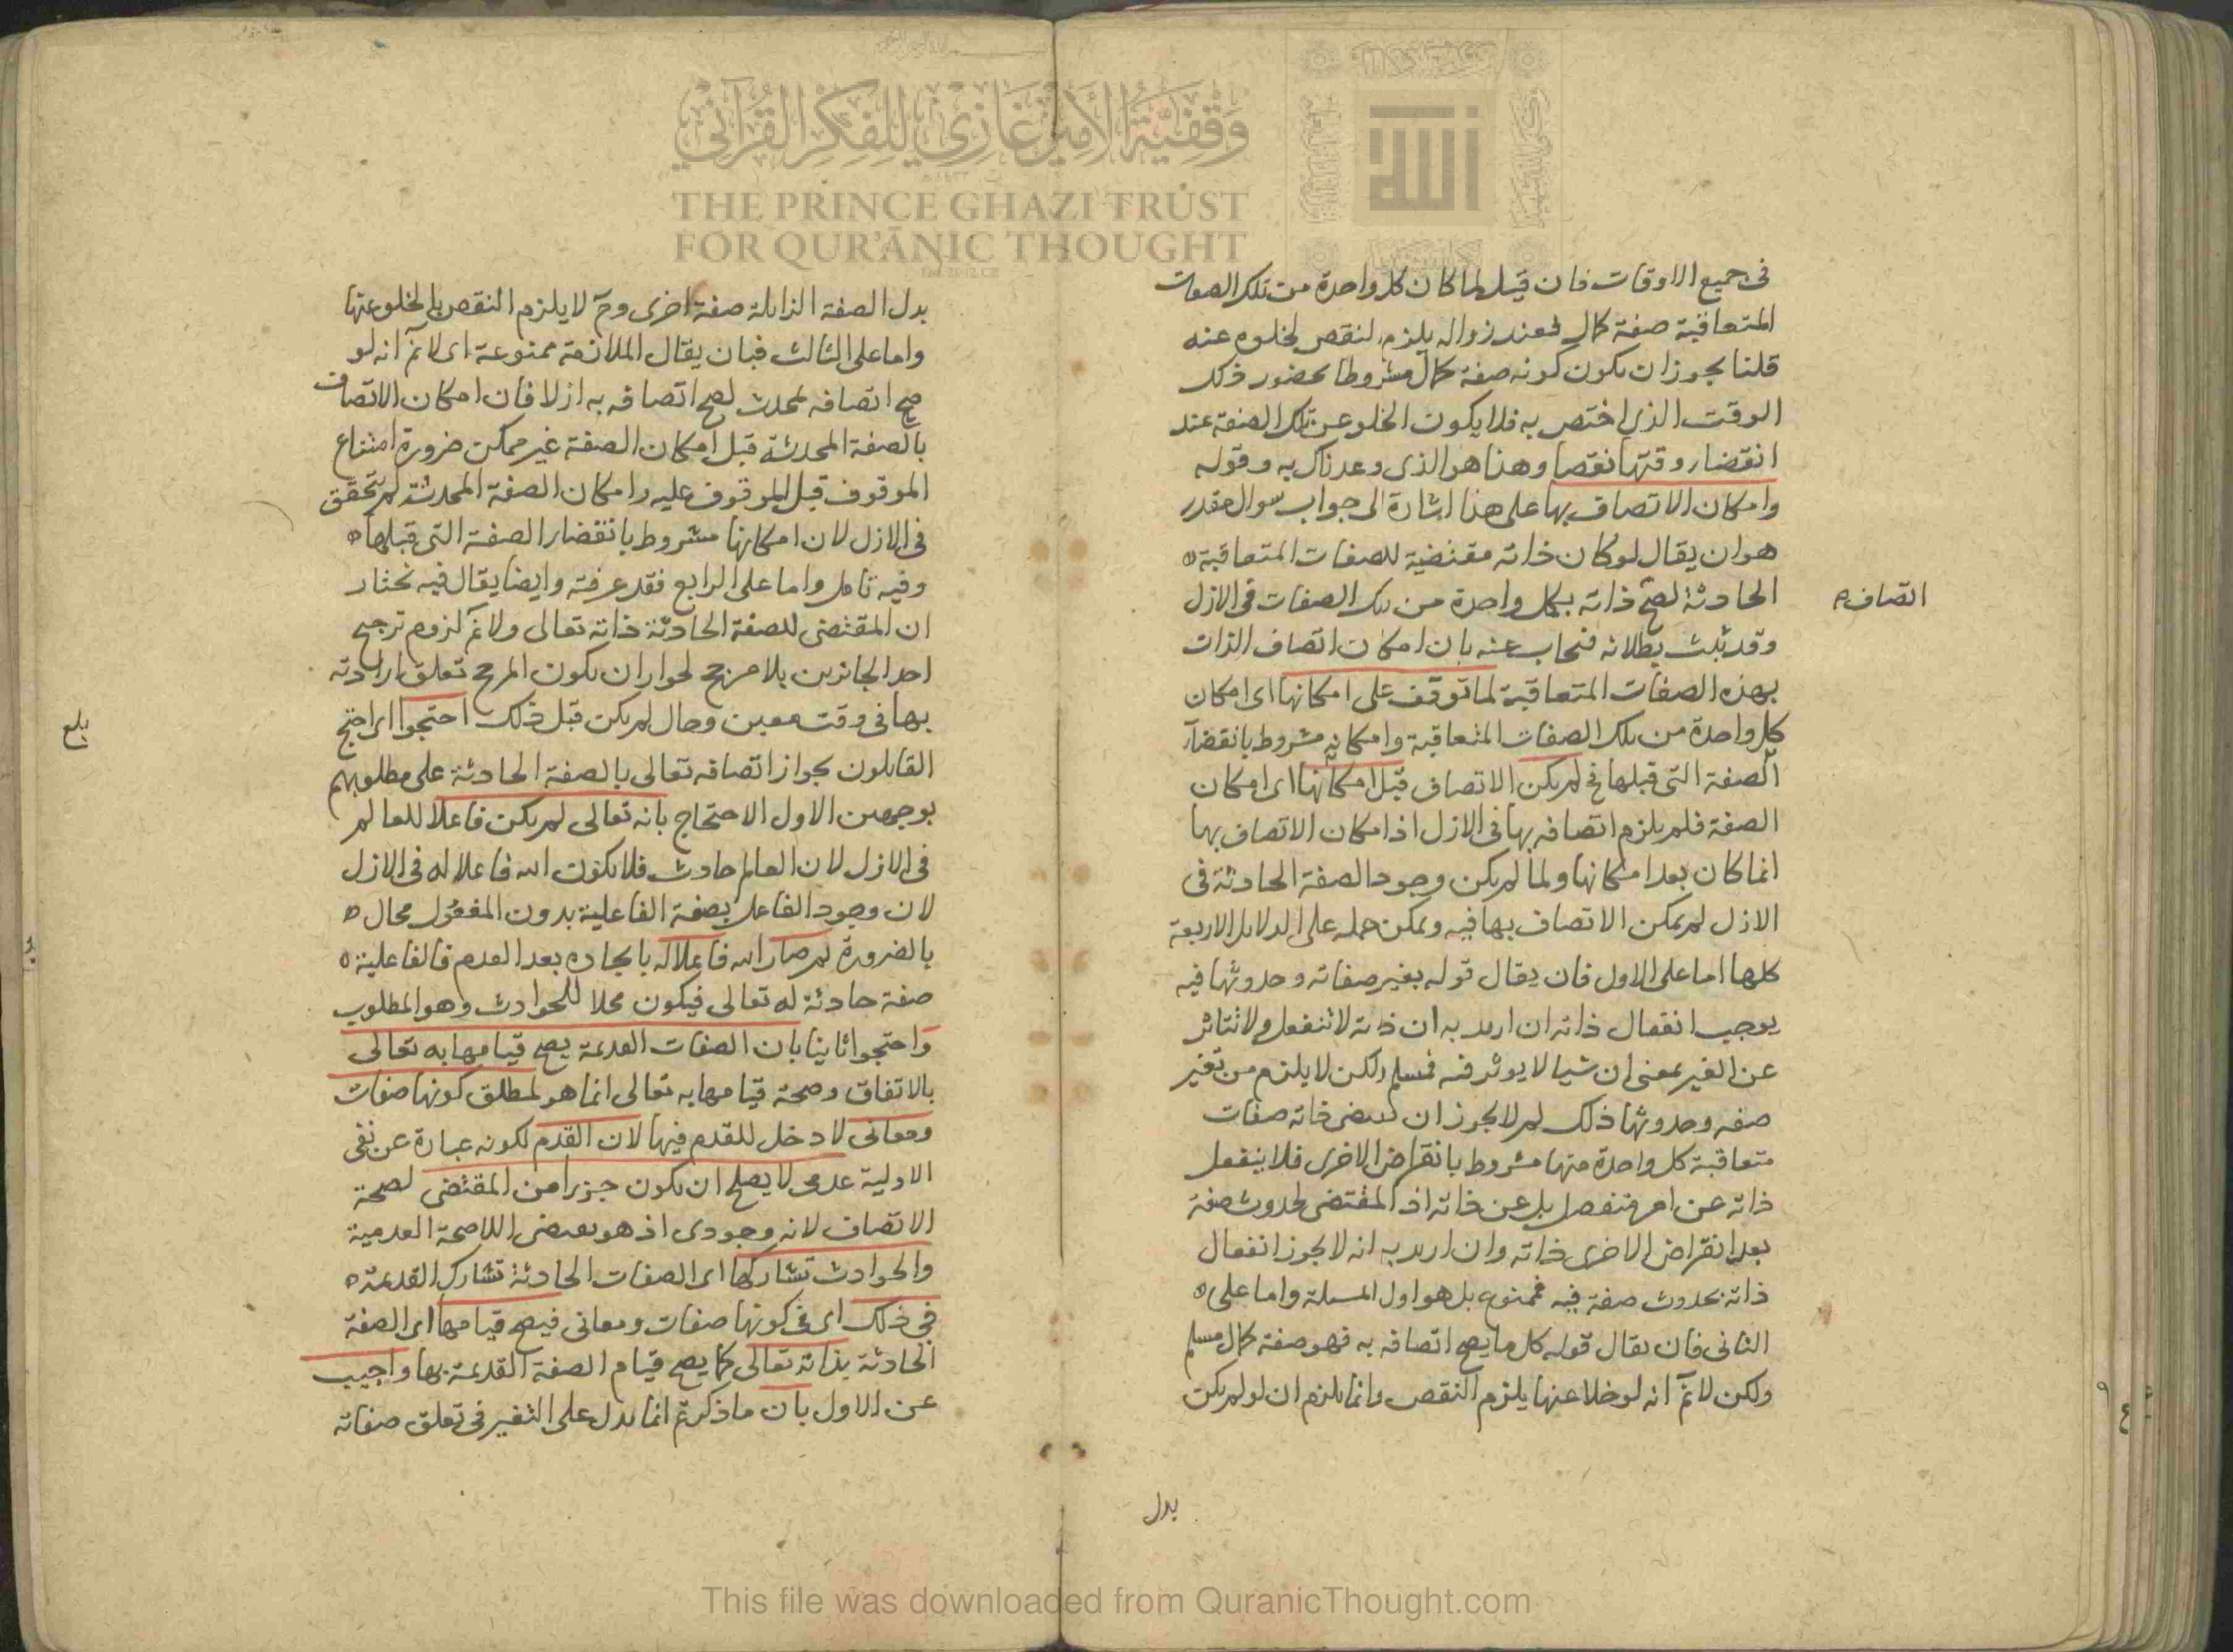 وقفية الأمير غازي للفكر القرآني
THE PRINCE GHAZI TRUST
FOR QUR'ĀNIC THOUGHT
الله
في جميع الاوقات فان قيل لما كان كل واحدة من تلك الصفات
المتعاقبة صفة كمال فعند زواله يلزم النقص لخلوه عنه
قلنا يجوز ان يكون كونه صفة كمال مشروطا بحضور ذلك
الوقت الذي اختص به فلا يكون الخلو عن تلك الصفة عند
انقضاء وقتها نقصا وهذا هو الذي وعدناك به وقوله
وامكان الاتصاف بها على هذا اشارة الى جواب سوال مقدر
هو ان يقال لو كان ذاته مقتضية للصفات المتعاقبة
الحادثة لصح ذاته بكل واحدة من تلك الصفات في الازل
اتصاف
وقد ثبت بطلانه فنجاب عنه بان امكان اتصاف الذات
بهذه الصفات المتعاقبة لما توقف على امكانها اى امكان
كل واحدة من تلك الصفات المتعاقبة وامكانه مشروط بانقضاء
الصفة التي قبلها فح لم يكن الاتصاف قبل امكانها اى امكان
الصفة فلم يلزم اتصافه بها في الازل اذ امكان الاتصاف بها
انما كان بعد امكانها ولما لم يكن وجود الصفة الحادثة في
الازل لم يمكن الاتصاف بها فيه ويمكن حمله على الدلايل الاربعة
كلها اما على الاول فان يقال قوله بغير صفاته وحدوثها فيه
يوجب انفعال ذاته ان اريد به ان ذاته لا تنفعل ولا تتاثر
عن الغير بمعنى ان شيا لا يوثر فيه فمسلم ولكن لا يلزم من تغير
صفه وحدوثها ذلك لم لا يجوز ان يقتضى ذاته صفات
متعاقبة كل واحدة منها مشروط بانقراض الاخرى فلا ينفعل
ذاته عن امر منفصل بل عن ذاته اذ المقتضى لحدوث صفة
بعد انقراض الاخرى ذاته وان اريد به انه لا يجوز انفعال
ذاته بحدوث صفة فيه فممنوع بل هو اول المسلة واما على
الثانى فان يقال قوله كل ما يصح اتصافه به فهو صفة كمال مسلم
ولكن لانم انه لو خلا عنها يلزم النقص وانما يلزم ان لو لم يكن
بدل
بدل الصفة الزايلة صفة اخرى وح لا يلزم النقص بالخلو عنها
واما على الثالث فبان يقال الملازمة ممنوعة اى لانم انه لو
صح اتصافه بمحدث لصح اتصافه به ازلا فان امكان الاتصاف
بالصفة المحدثة قبل امكان الصفة غير ممكن ضرورة امتناع
الموقوف قبل الموقوف عليه وامكان الصفة المحدثة لم يتحقق
في الازل لان امكانها مشروط بانقضاء الصفة التي قبلها
وفيه تامل واما على الرابع فقد عرفته وايضا يقال فيه نختار
ان المقتضى للصفة الحادثة ذاته تعالى ولانم لزوم ترجيح
احد الجايزين بلا مرجح لجواز ان يكون المرجح تعلق ارادته
بها في وقت معين وحال لم يكن قبل ذلك احتجوا اى احتج
بلع
القايلون بجواز اتصافه تعالى بالصفة الحادثة على مطلوبهم
بوجهين الاول الاحتجاج بانه تعالى لم يكن فاعلا للعالم
في الازل لان العالم حادث فلا يكون الله فاعلا له في الازل
لان وجود الفاعل بصفة الفاعلية بدون المفعول محال
بالضرورة ثم صار الله فاعلا له بايجاده بعد العدم فالفاعلية
صفة حادثة له تعالى فيكون محلا للحوادث وهو المطلوب
واحتجوا ثانيا بان الصفات القديمة يصح قيامها به تعالى
بالاتفاق وصحة قيامها به تعالى انما هو لمطلق كونها صفات
ومعانى لا دخل للقدم فيها لان القدم لكونه عبارة عن نفى
الاولية عدمى لا يصلح ان يكون جزءا من المقتضى لصحة
الاتصاف لانه وجودى اذ هو نقيض اللاصحة العدمية
والحوادث تشاركها اى الصفات الحادثة تشارك القديمة
في ذلك اى في كونها صفات ومعانى فيصح قيامها اى الصفة
الحادثة بذاته تعالى كما يصح قيام الصفة القديمة بها واجيب
عن الاول بان ما ذكرتم انما يدل على التغير في تعلق صفاته
This file was downloaded from QuranicThought.com